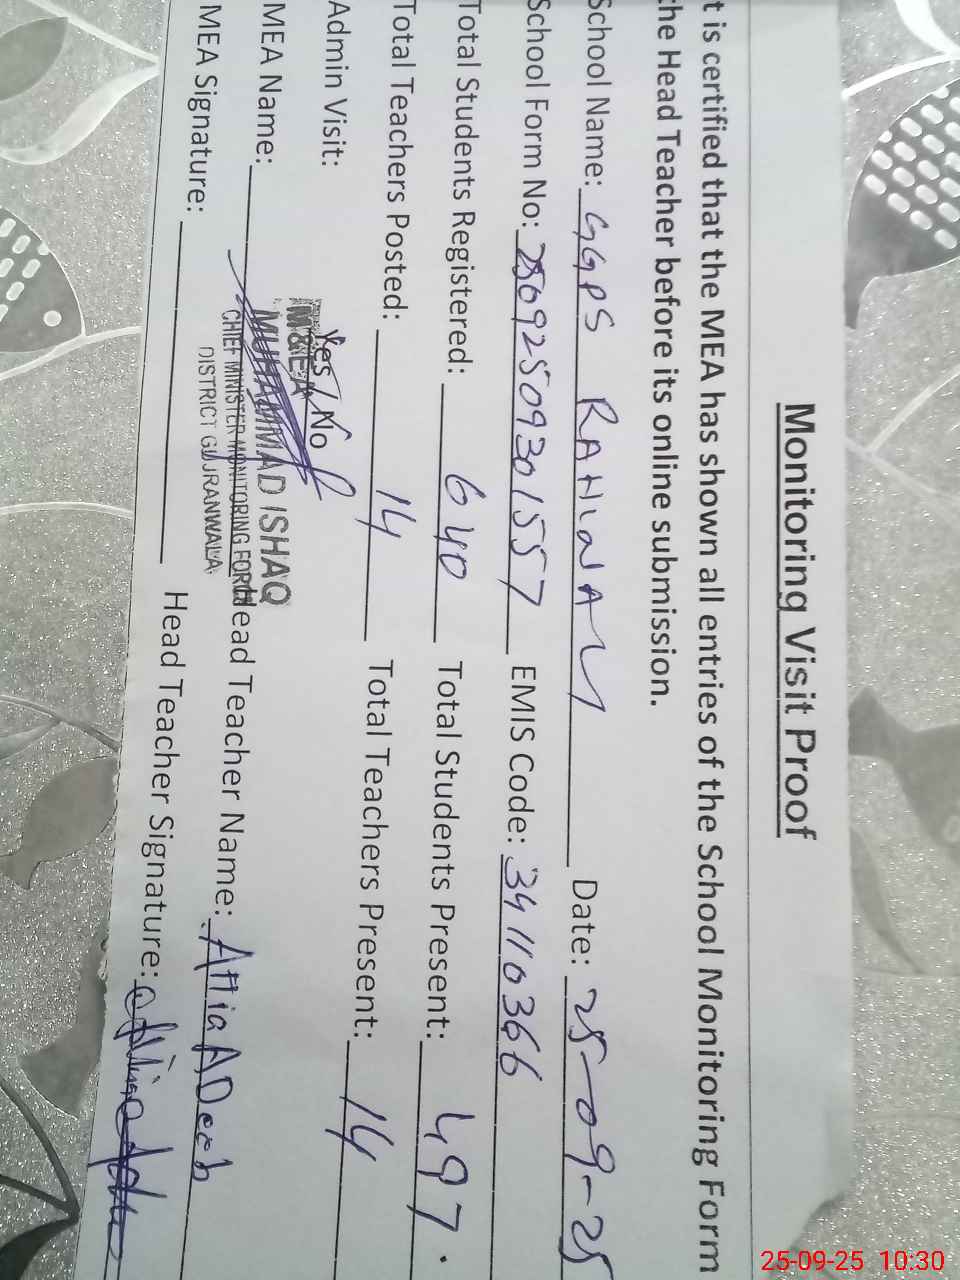 Monitoring Visit Proof
t is certified that the MEA has shown all entries of the School Monitoring Form
the Head Teacher before its online submission.
School Name: GGPS RAHWALI Date: 25-09-25
School Form No: 25092509301557 EMIS Code: 34110366
Total Students Registered: 640 Total Students Present: 497.
Total Teachers Posted: 14 Total Teachers Present: 14
Admin Visit: Yes / No
M&EA
MEA Name: MUHAMMAD ISHAQ Head Teacher Name: Attia ADeeb
CHIEF MINISTER MONITORING FORCE
DISTRICT GUJRANWALA
MEA Signature: Head Teacher Signature:
25-09-25 10:30